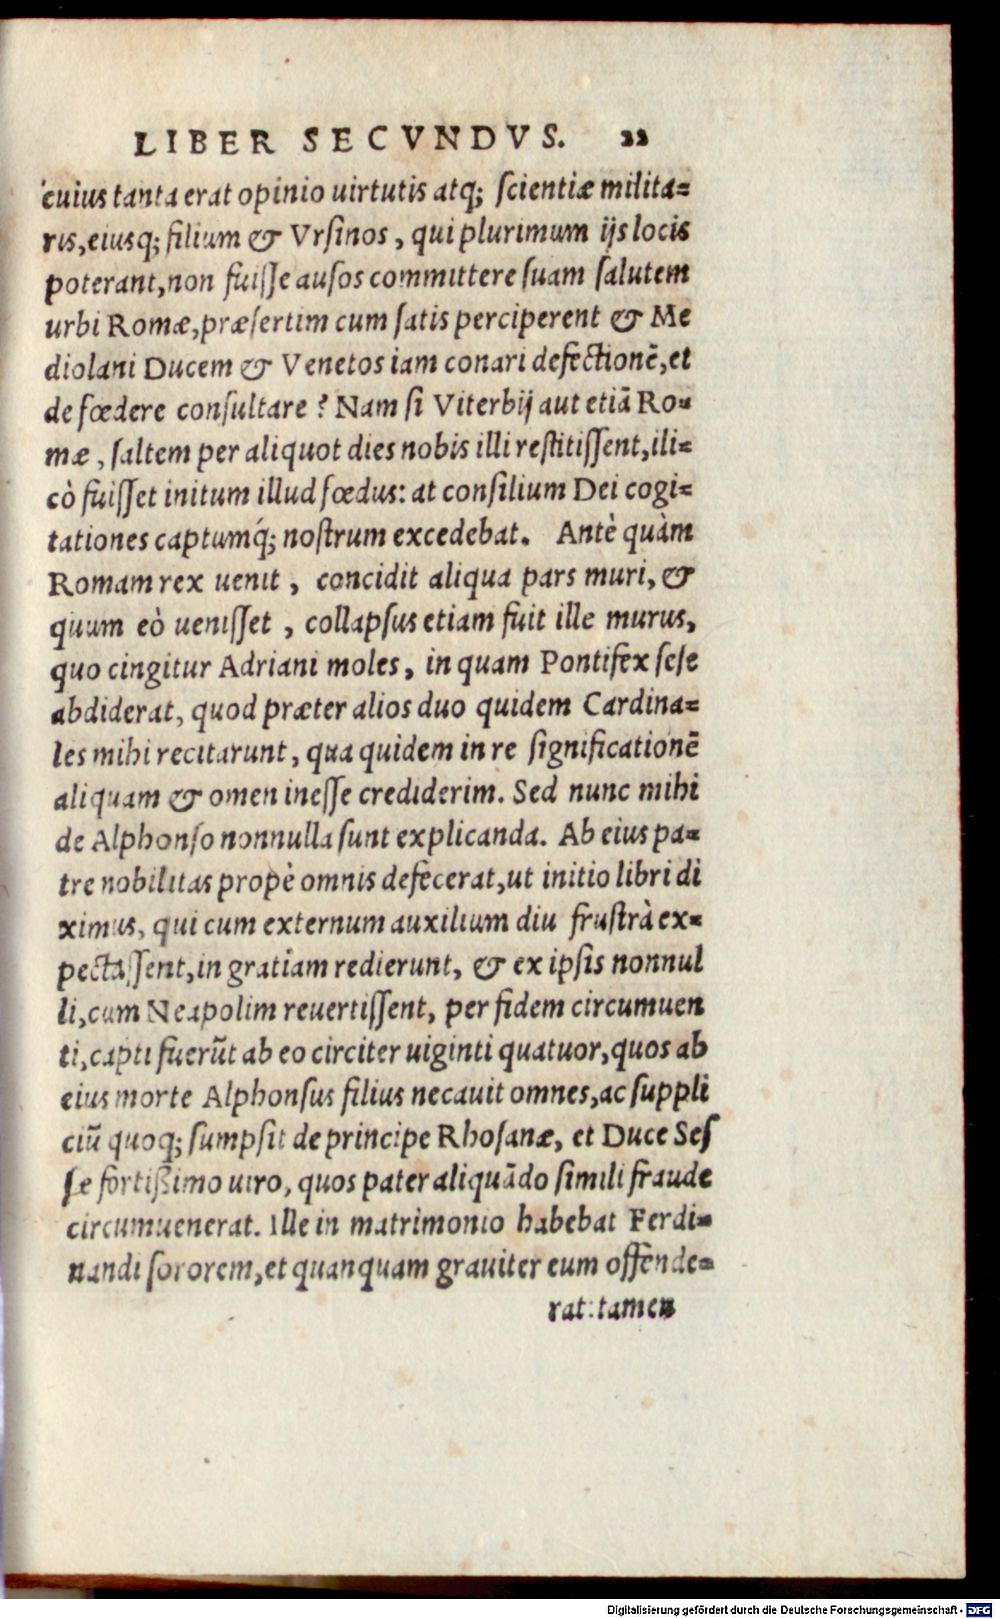 LIBER SECVNDVS. 22
cuius tanta erat opinio uirtutis atq; scientiæ milita=
ris, eiusq; filium & Vrsinos, qui plurimum ijs locis
poterant, non fuisse ausos committere suam salutem
urbi Romæ, præsertim cum satis perciperent & Me
diolani Ducem & Venetos iam conari defectionē, et
de fœdere consultare? Nam si Viterbij aut etiā Ro=
mæ, saltem per aliquot dies nobis illi restitissent, ili=
cò fuisset initum illud fœdus: at consilium Dei cogi=
tationes captumq́; nostrum excedebat. Antè quàm
Romam rex uenit, concidit aliqua pars muri, &
quum eò uenisset, collapsus etiam fuit ille murus,
quo cingitur Adriani moles, in quam Pontifex sese
abdiderat, quod præter alios duo quidem Cardina=
les mihi recitarunt, qua quidem in re significationē
aliquam & omen inesse crediderim. Sed nunc mihi
de Alphonso nonnulla sunt explicanda. Ab eius pa=
tre nobilitas propè omnis defecerat, ut initio libri di
ximus, qui cum externum auxilium diu frustrà ex=
pectassent, in gratiam redierunt, & ex ipsis nonnul
li, cum Neapolim reuertissent, per fidem circumuen
ti, capti fuerūt ab eo circiter uiginti quatuor, quos ab
eius morte Alphonsus filius necauit omnes, ac suppli
ciū quoq; sumpsit de principe Rhosanæ, et Duce Ses
sæ fortißimo uiro, quos pater aliquādo simili fraude
circumuenerat. Ille in matrimonio habebat Ferdi=
nandi sororem, et quanquam grauiter eum offende=
rat: tamen
Digitalisierung gefördert durch die Deutsche Forschungsgemeinschaft - DFG